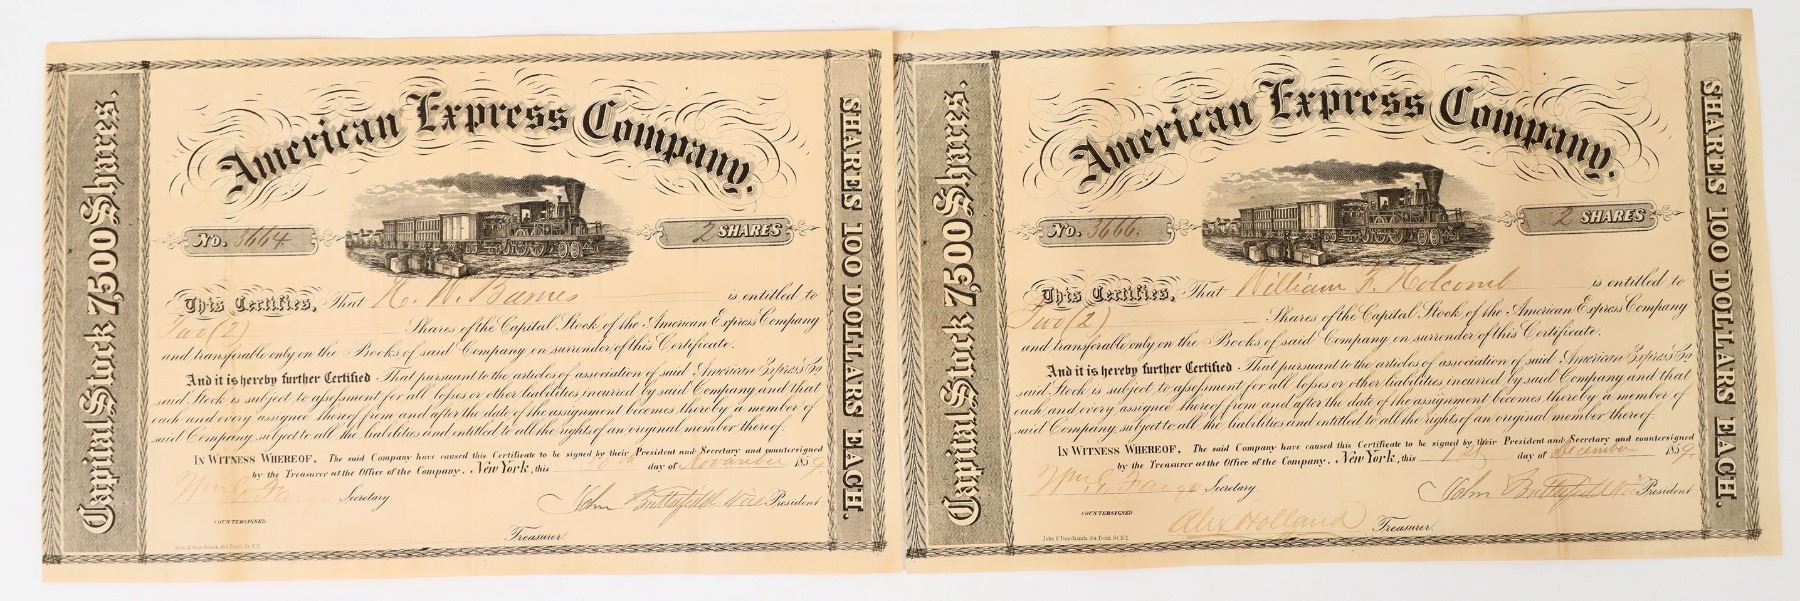 American Express Company.
Capital Stock 7,500 Shares.
SHARES 100 DOLLARS EACH.
No. 3664.
2 SHARES
This Certifies, That H. W. Barnes is entitled to
Two (2) Shares of the Capital Stock of the American Express Company
and transferable only on the Books of said Company on surrender of this Certificate.
And it is hereby further Certified That pursuant to the articles of association of said American Express Co
said Stock is subject to assessment for all losses or other liabilities incurred by said Company and that
each and every assignee thereof from and after the date of the assignment becomes thereby a member of
said Company, subject to all the liabilities and entitled to all the rights of an original member thereof.
IN WITNESS WHEREOF, The said Company have caused this Certificate to be signed by their President and Secretary and countersigned
by the Treasurer at the Office of the Company. New York, this 30th day of November 1859
Wm G. Fargo Secretary John Butterfield Vice President
COUNTERSIGNED
Treasurer.
American Express Company.
Capital Stock 7,500 Shares.
SHARES 100 DOLLARS EACH.
No. 3666.
2 SHARES
This Certifies, That William F. Holcomb is entitled to
Two (2) Shares of the Capital Stock of the American Express Company
and transferable only on the Books of said Company on surrender of this Certificate.
And it is hereby further Certified That pursuant to the articles of association of said American Express Co
said Stock is subject to assessment for all losses or other liabilities incurred by said Company and that
each and every assignee thereof from and after the date of the assignment becomes thereby a member of
said Company, subject to all the liabilities and entitled to all the rights of an original member thereof.
IN WITNESS WHEREOF, The said Company have caused this Certificate to be signed by their President and Secretary and countersigned
by the Treasurer at the Office of the Company. New York, this 1st day of December 1859.
Wm G. Fargo Secretary John Butterfield Vice President
COUNTERSIGNED
Alex Holland Treasurer.